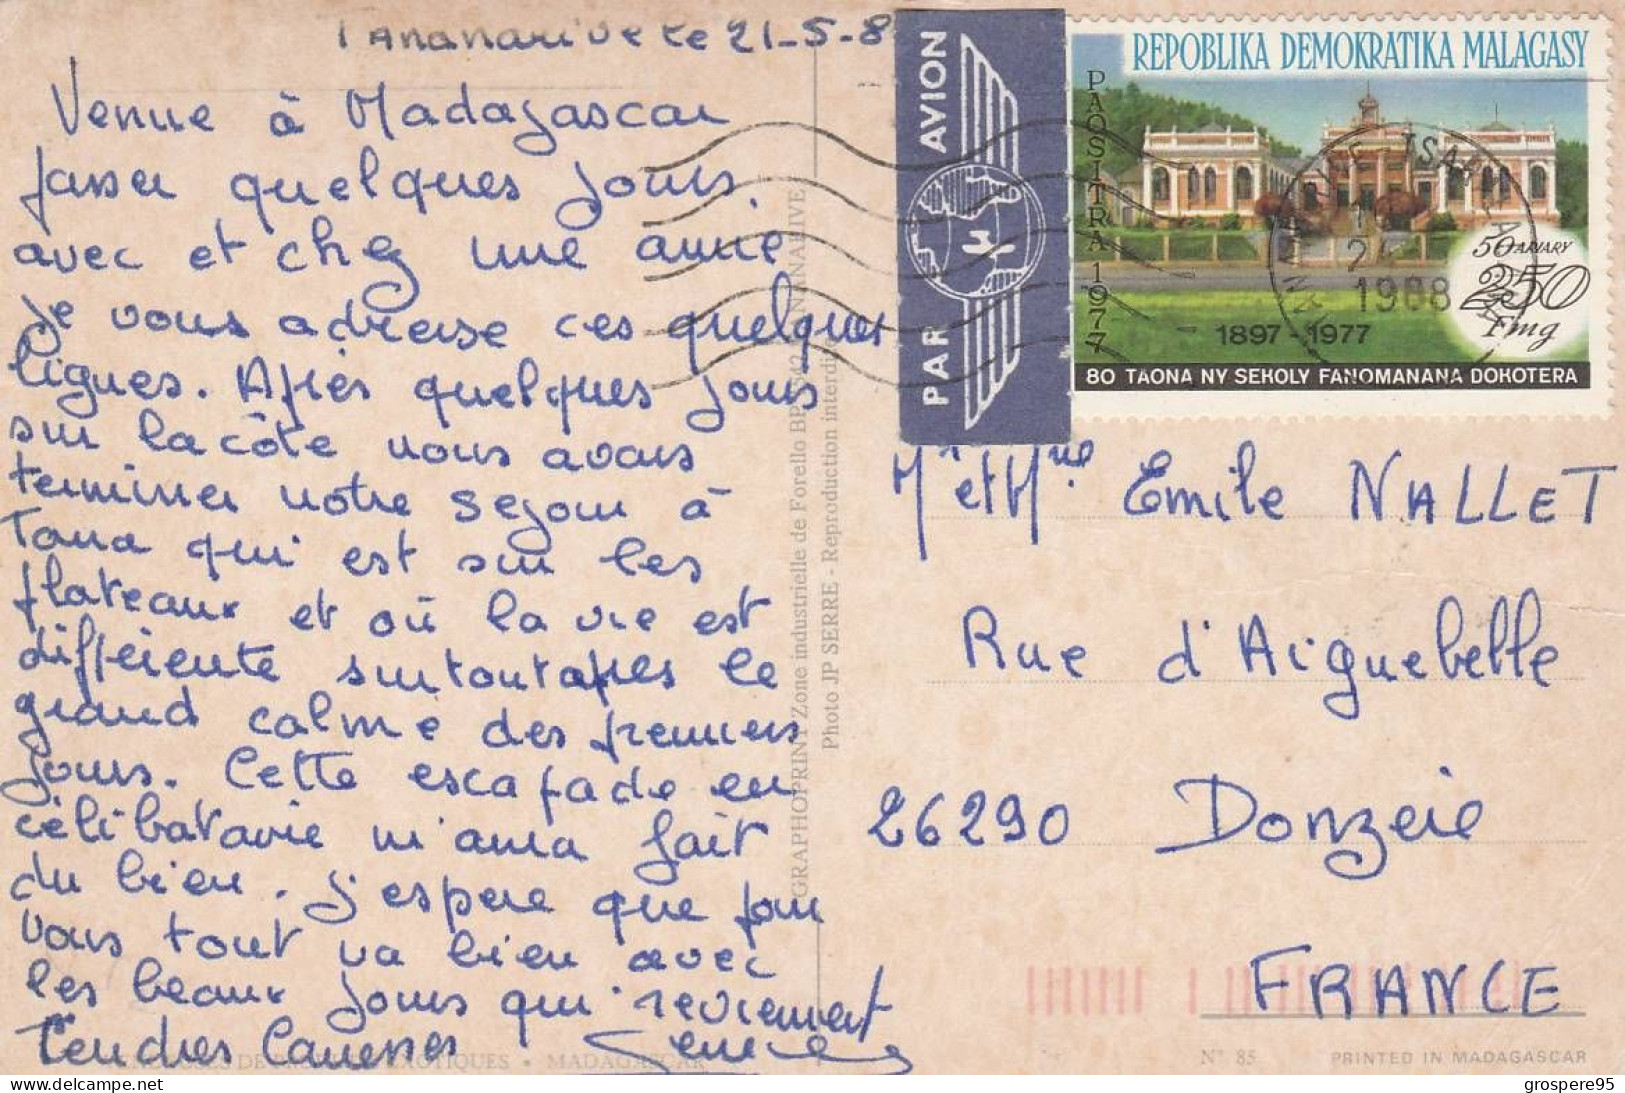 Tananarive le 21-5-8
Venue à Madagascar
passer quelques jours
avec et chez une amie
je vous adresse ces quelques
lignes. Après quelques jours
sur la côte nous avons
terminer notre sejour à
Tana qui est sur les
plateaux et où la vie est
différente surtout après le
grand calme des premiers
jours. Cette escapade en
célibatarie m'aura fait
du bien. J'espère que pour
vous tout va bien avec
les beaux jours qui reviennent
Tendres Caresses
PAR AVION
REPOBLIKA DEMOKRATIKA MALAGASY
PAOSITRA 1977
50 ARIARY
250 Fmg
1897-1977
80 TAONA NY SEKOLY FANOMANANA DOKOTERA
24
1988
Mr et Mme Emile NALLET
Rue d'Aiguebelle
26290 Donzère
FRANCE
GRAPHOPRINT Zone industrielle de Forello TANANARIVE
Photo JP SERRE - Reproduction interdite
EXOTIQUES • MADAGASCAR
N° 85 PRINTED IN MADAGASCAR
grospere95